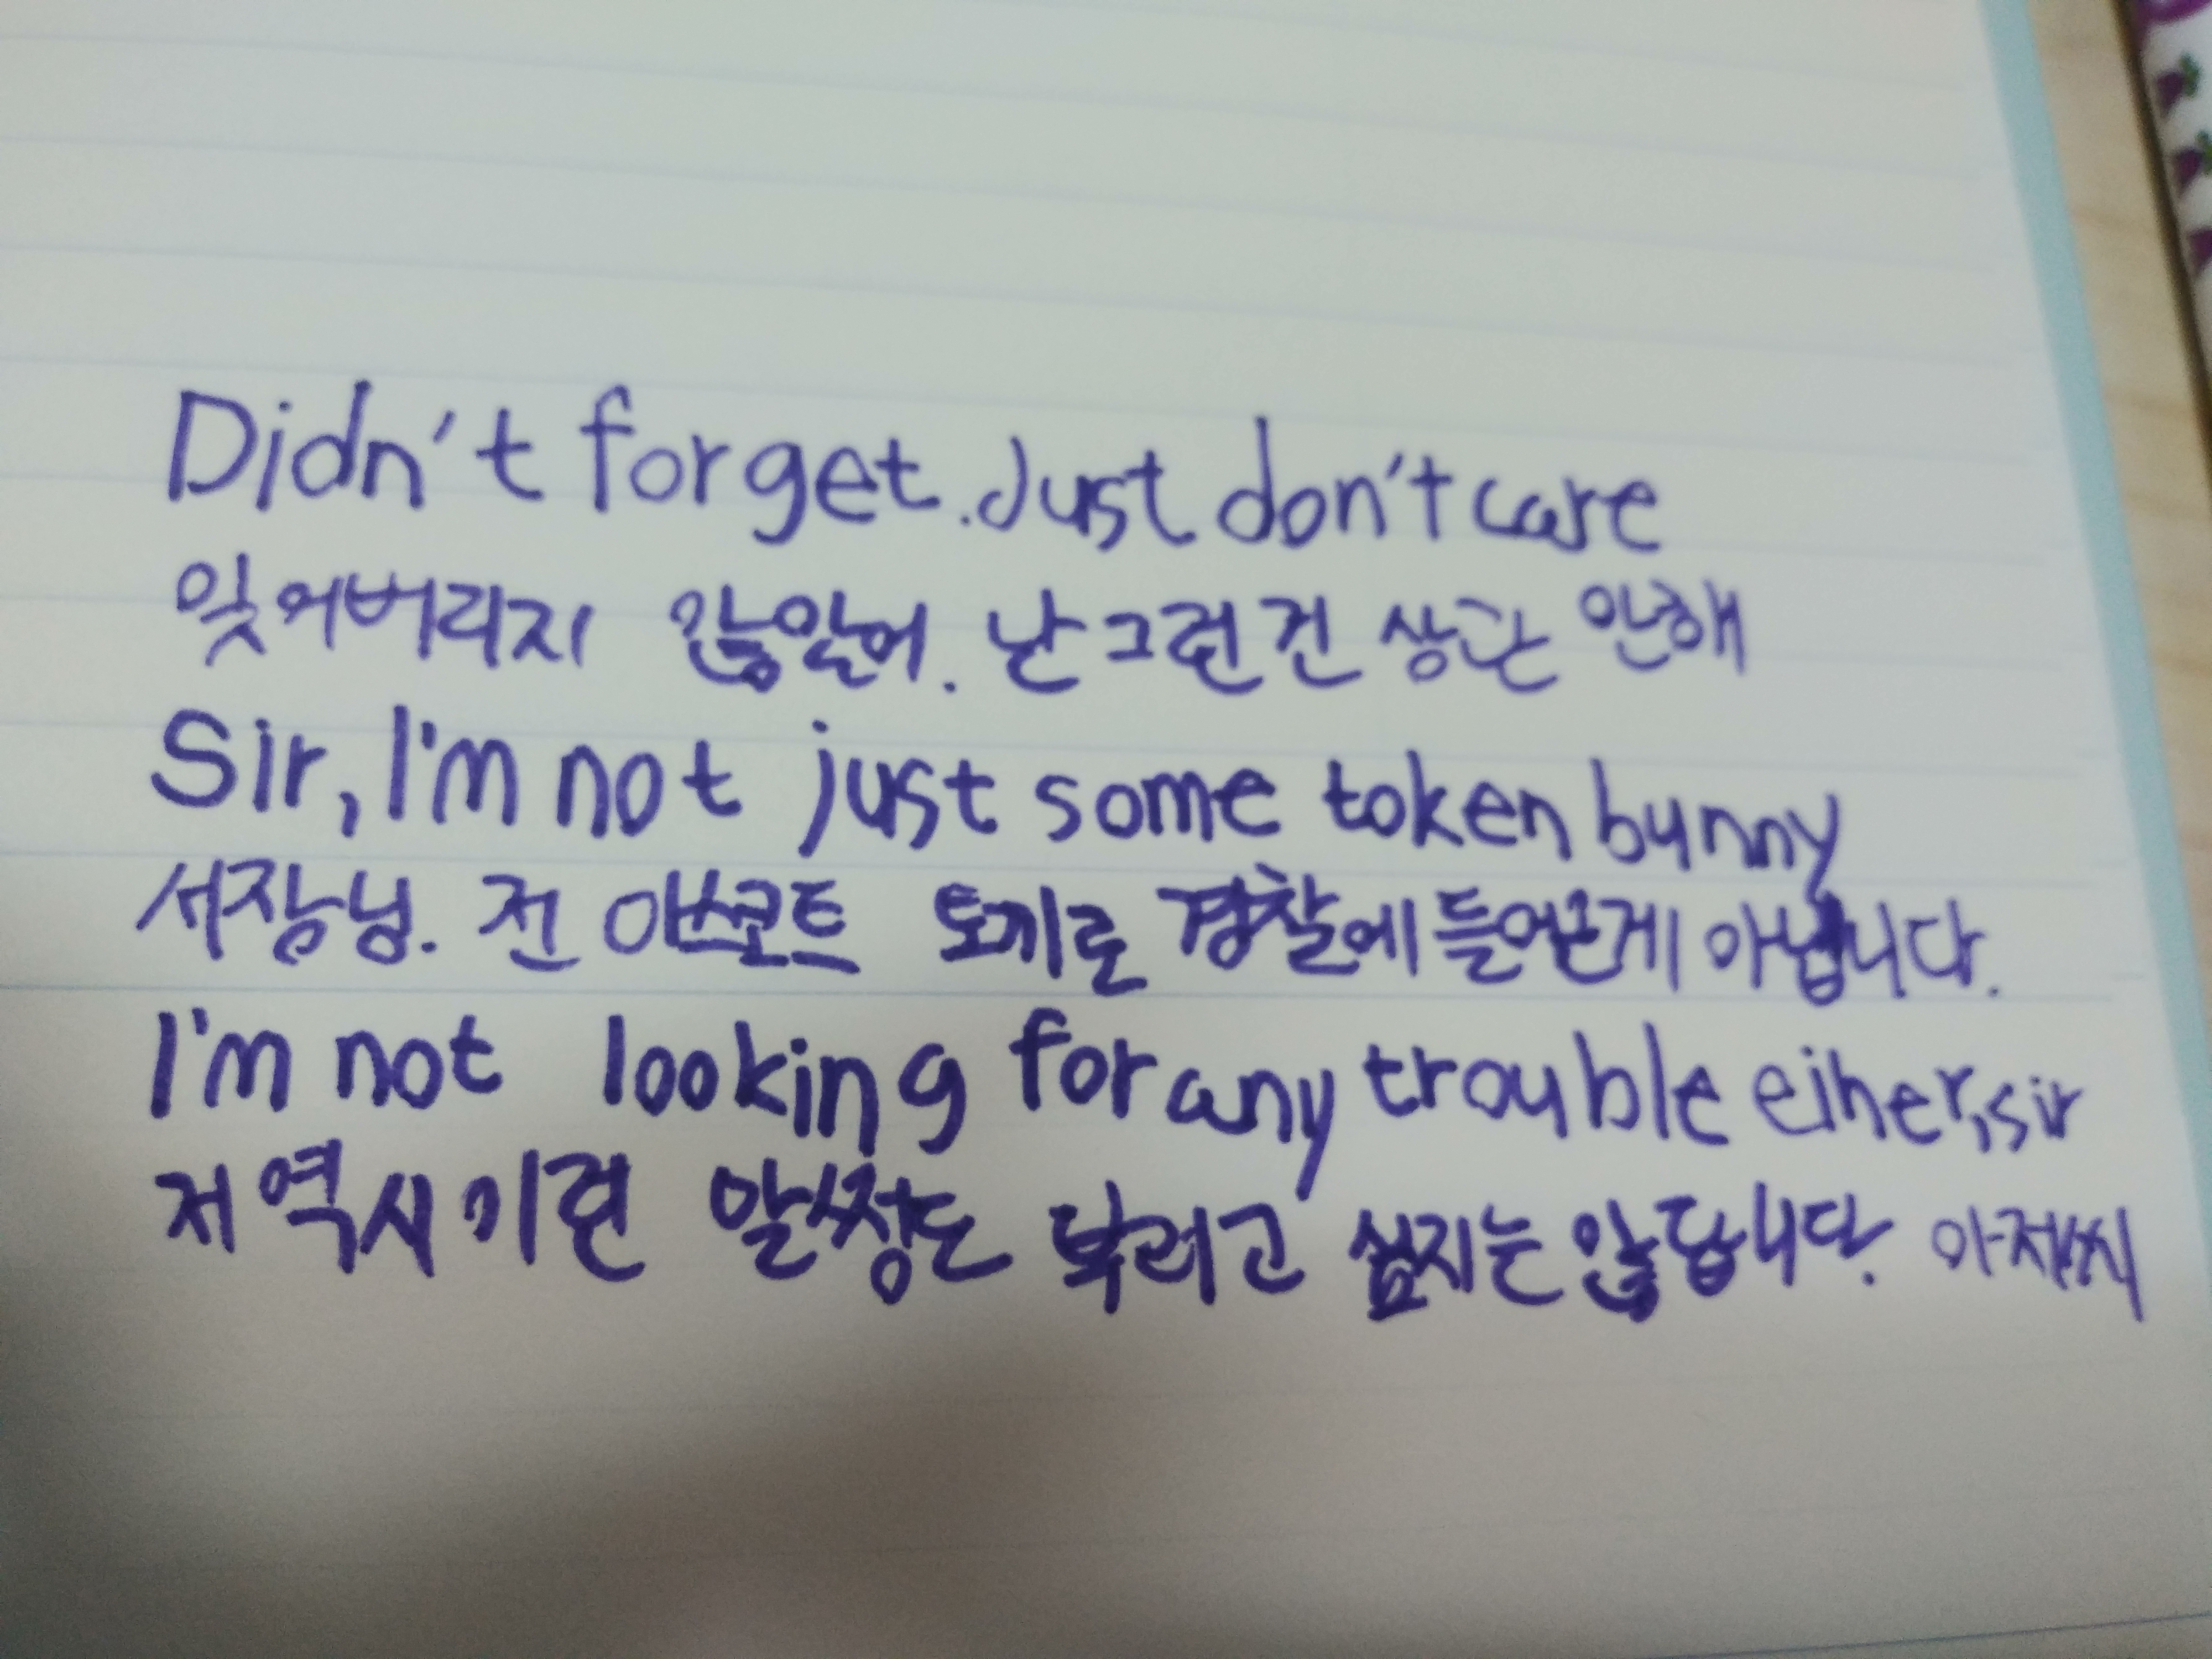 Didn't forget. Just don't care
잊어버리지 않았어. 난 그런 건 상관 안해
Sir, I'm not just some token bunny
서장님. 전 마스코트 토끼로 경찰에 들어온게 아닙니다.
I'm not looking for any trouble eiher, sir
저 역시 이런 말썽도 싶지는 않답니다. 아저씨